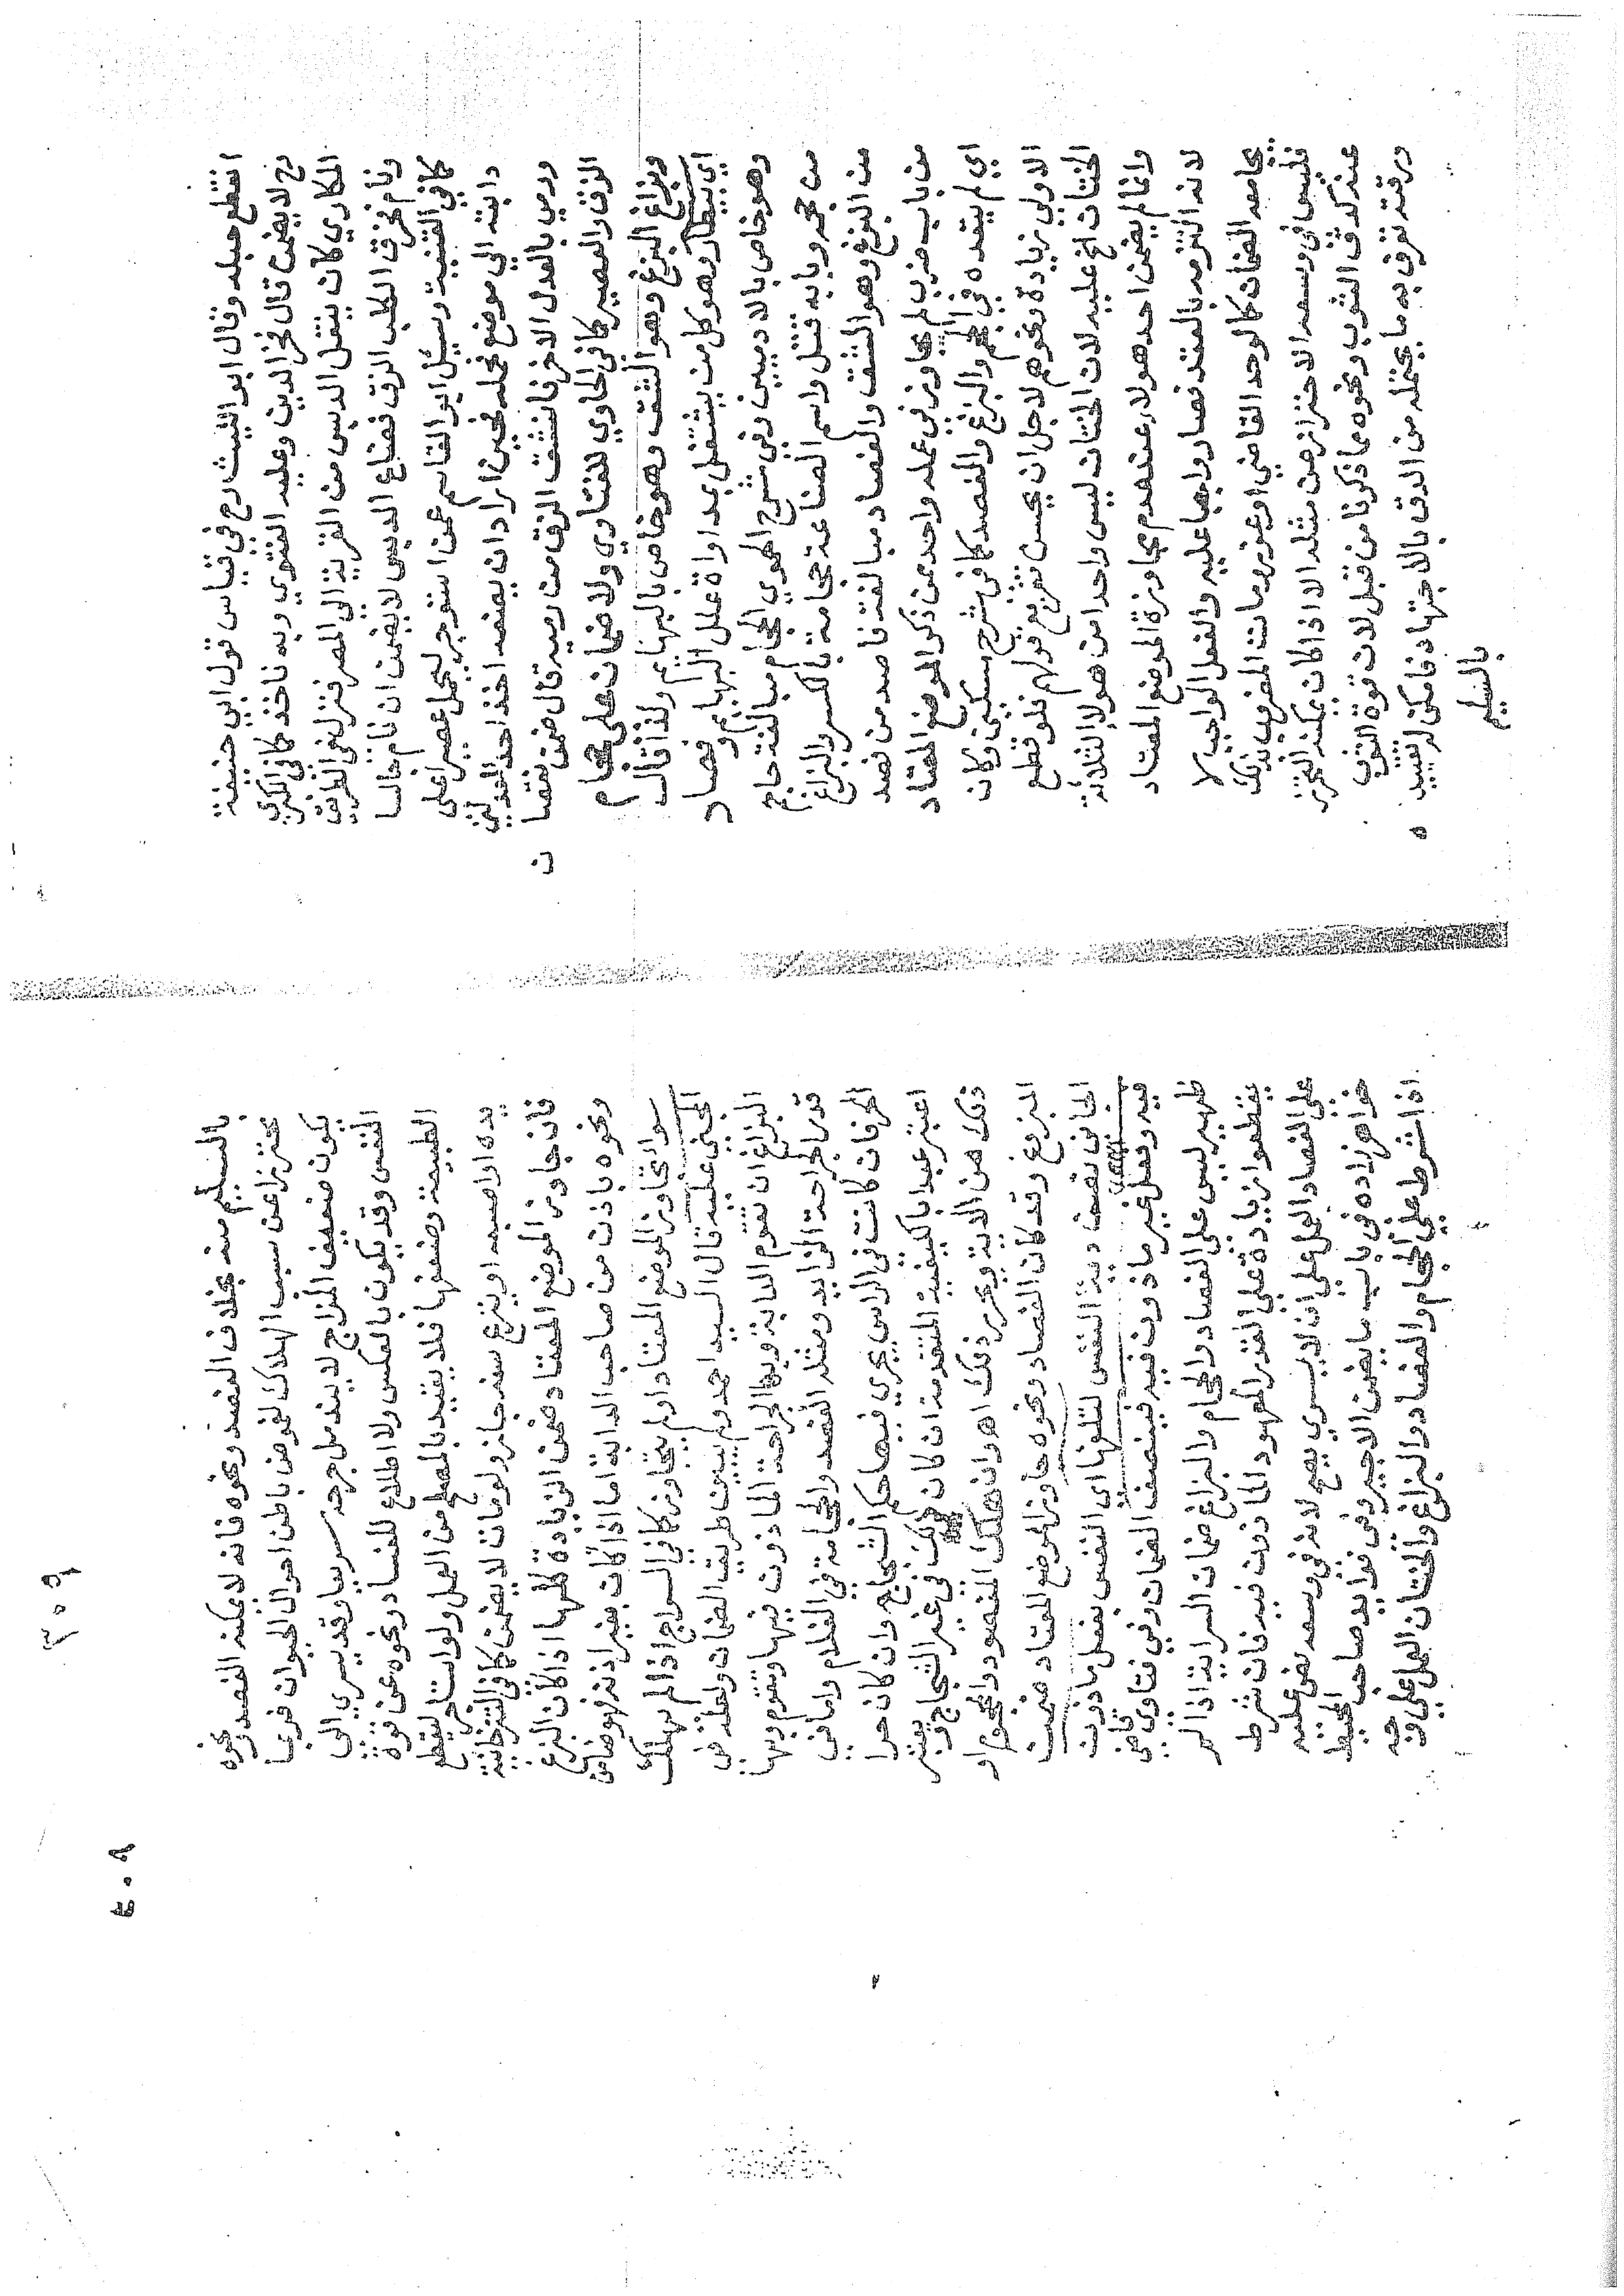 انقطع حبله وقال ابو الليث رح في قياس قول ابي حنيفة
رح لا يضمن قال فخر الدين وعليه الفتوي وبه ناخذ كما في الكبري
المكاري كان ينقل الدبس من القرية الي المصر فنزل في الطريق
ونام فخرق الكلب الزق فضاع الدبس لا يضمن ان نام جالسا
كما في القنية وسيل ابو القاسم عمن استوجر ليحمل عصيرا علي
دابته الي موضع فحمله فحين اراد ان يضعه اخذ احد العدلين
ورمي بالعدل الاخر فانشق الزق من رميه قال ضمن نقصان
الزق والعصير كما في الحاوي للفتاوي ولا ضمان علي حجام
وبزاغ البزغ وهو الشق وهو خاص بالبهايم ولذا قال
اي بيطار وهو كل من يشتغل بمداواة علل البهايم وفصاد
وهو خاص بالادميين وفي شرح الحموي الحجام مبالغة حاجم
من حجم وبابه قتل واسم الصناعة حجامة بالكسر والبزاغ
من البزغ وهو الشق والفصاد مبالغة فاصد من فصد
من باب ضرب لم يجاوز في عمله واحد من ذكر الموضع المعتاد
اي لم يتعده في الحجم والبزغ والفصد كما في شرح مسكين وكان
الاولي زيادة ونحوهم لاجل ان يحسن تفريع قولهم فلو قطع
الختان الخ عليه لان الختان ليس واحدا من هولا الثلاثة
وانما لم يضمن احد هولاء عند عدم مجاوزة الموضع المعتاد
لانه التزمه بالعقد فصار واجبا عليه والفعل الواجب لا
يجامعه الضمان كما لو حد القاضي او عزر ومات المضروب بذلك
فليس في وسعه الاحتراز عن مثله الا اذا كان يمكنه التحرز
عنه كدق الثوب ونحوه مما ذكرنا من قبل لان قوة الثوب
ورقته تعرف به ما يحتمله من الدق بالاجتهاد فامكن تقييده
بالسليم
بالسليم منه بخلاف الفصد ونحوه فانه لا يمكنه الفصد ونحوه
محترزا عن سبب الهلاك لغموض باطن احوال الحيوان فربما
يكون ضعيف المزاج لا يندمل جرحه سريعا وقد يسري الي
النفس وقد يكون بالعكس ولا اطلاع للفصاد ونحوه عن قوة
الطبيعة وضعفها فلا يقيد بالمصلح من العمل ولو استاجر ليقطع
يده او اصبعه او ينزع سنه جاز ولو مات لا يضمن كما في التترخانية
فان جاوز الموضع المعتاد ضمن الزيادة كلها اذا كان البزغ
ونحوه باذن من صاحب الدابة اما اذا كان بغير اذنه فهو ضامن
سوا تجاوز الموضع المعتاد او لم يتجاوز كما في السراج اذا لم يهلك
المجني عليه قال السيد احمد ولم يبين طريق الضمان ولعله في
البزاغ ان تقوم الدابة وبها الجراحة الماذون فيها وتقوم وبها
قدر الجراحة الزايد ومثله الفصد والحجامة في الغلام واما في
الحر فان كانت في الراس يجري فيها حكم الشجاج وان كان حرا
اعتبر عبدا بالكيفية المتقدمة ان كان ذلك في غير الشجاج ويعتبر
ذلك من الدية ويحرر ذلك اه وان هلك المفصود والمحجوم او
المبزوغ وقد كان الفصاد ونحوه جاوز الموضع المعتاد ضمن
الجاني نصف دية النفس لتلفها اي النفس بفعل ماذون
فيه وفعل غير ماذون فيه فينصف الضمان وفي فتاوي قاضي
ظهير ليس علي الفصاد والحجام والبزاغ ضمان السراية اذا لم
يقطعوا زيادة علي القدر المعهود الماذون فيه فان شرط
علي الفصاد العمل علي ان لا يسري يصح لانه في وسعه نص عليه
خواهر زاده في باب ما يضمن الاجير وفي فوايد صاحب المحيط
اذا شرط علي الحجام والفصاد والبزاغ والختان العمل علي وجه
٣٠٩
٤٠٨